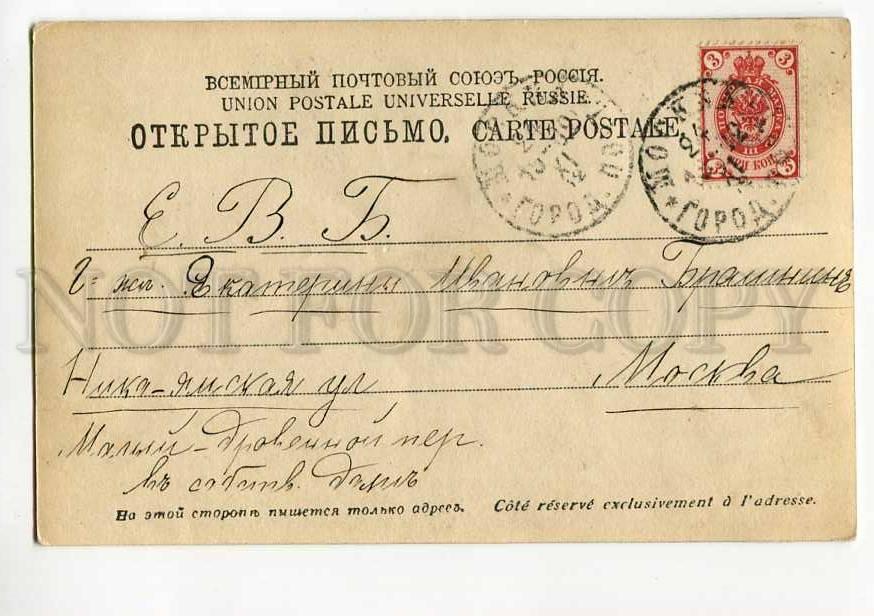 ВСЕМІРНЫЙ ПОЧТОВЫЙ СОЮЗЪ. РОССІЯ.
UNION POSTALE UNIVERSELLE RUSSIE.
ОТКРЫТОЕ ПИСЬМО. CARTE POSTALE.
3 3
III
ТРИ КОП.
3 3
МОСКВА
ГОРОД. ПОЧ
МОСКВА
ГОРОД. П
Е. В. Б.
Г-жѣ Екатеринѣ Ивановнѣ
Нико-ямская ул Москва
Малый-дровенной пер.
въ собств. домѣ
На этой сторонѣ пишется только адресъ. Côté réservé exclusivement à l'adresse.
NOT FOR COPY